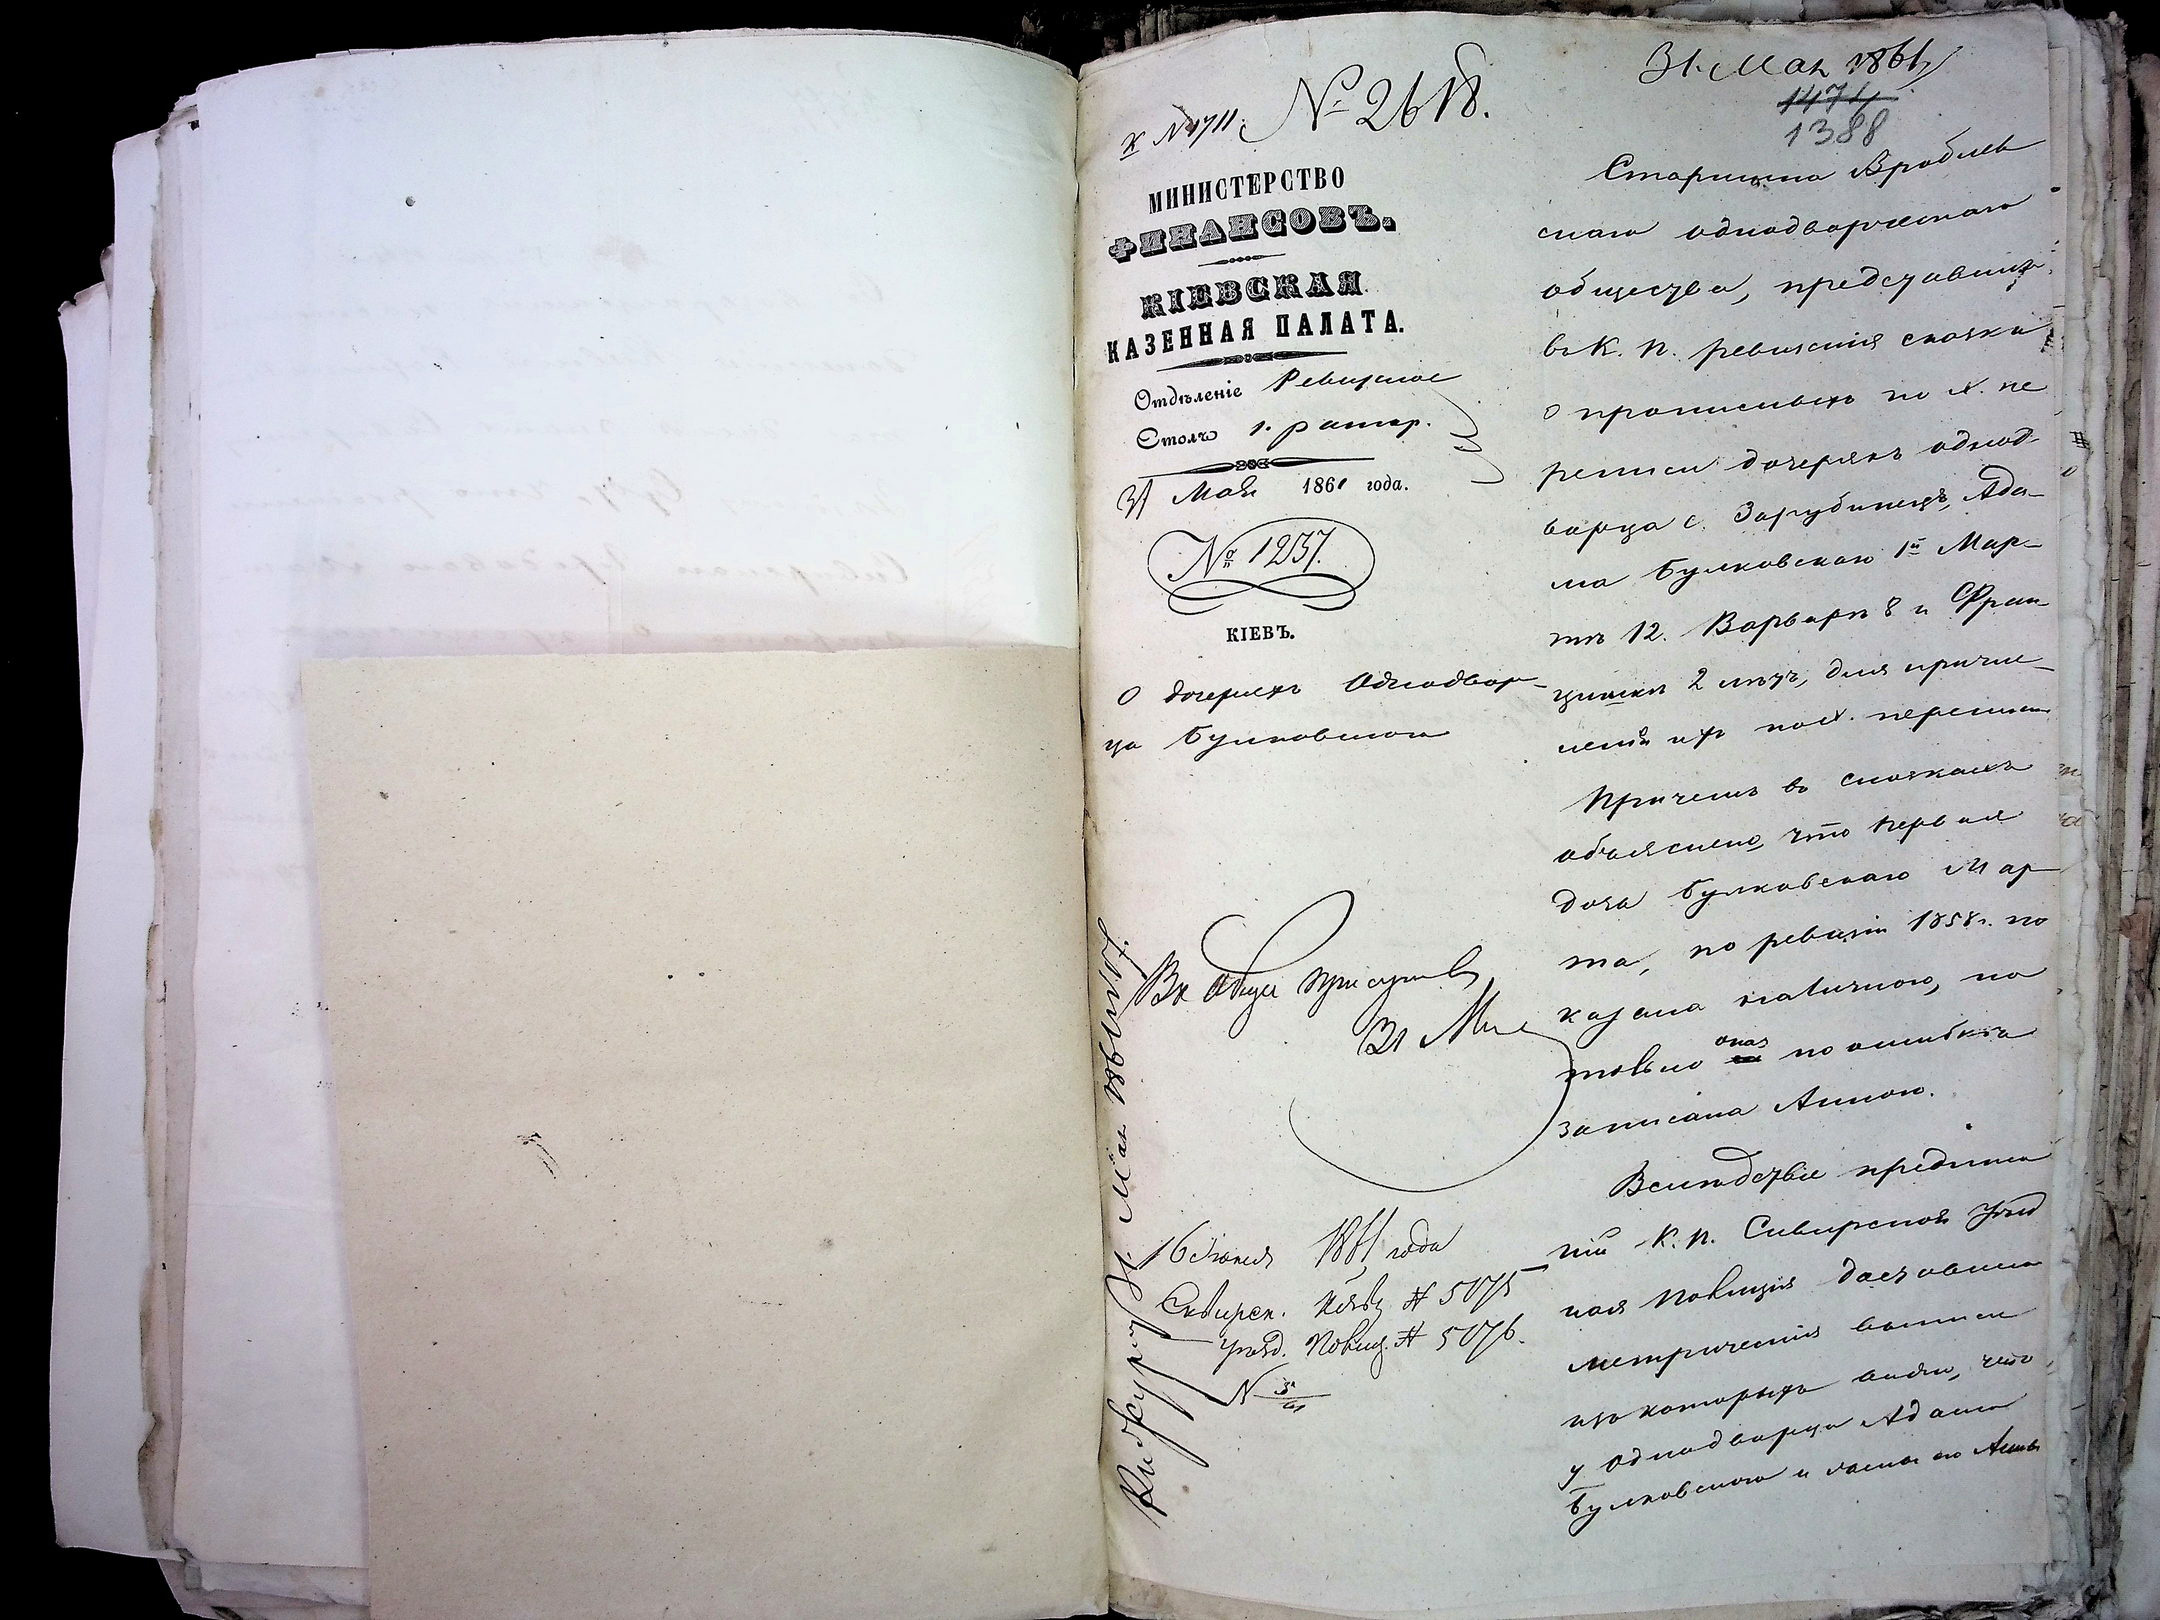 к №1711.
№ 2618.
31. Мая 1861
1474
1388
МИНИСТЕРСТВО
ФИНАНСОВЪ.
КІЕВСКАЯ
КАЗЕННАЯ ПАЛАТА.
Отдѣленіе Ревизское
Столъ 1.
31 Мая 1861 года.
№ 1237.
КІЕВЪ.
О дочеряхъ Однодвор-
ца Булковскаго
31 Мая
16 Іюня 1861 года
Сквирск. № 5075
уѣзд. Полиц. № 5076.
31. Мая 1861 года.
Старшина Вроблев
скаго однодворческаго
общества, представилъ
въ К. П. ревизскія сказки
о прописныхъ по X. пе
реписи дочеряхъ однод-
ворца с. Зарубинецъ, Ада-
ма Булковскаго 1й Мар-
тѣ 12. Варварѣ 8 и Фран-
цишкѣ 2 лѣтъ, для причис-
ленія ихъ по X. переписи
Причемъ въ сказкахъ
объяснено, что первая
дочь Булковскаго Мар
та, по ревизіи 1858 г. по
казана наличною, но
только она по ошибкѣ
записана Анною.
Вслѣдствіе предписа
нія К. П. Сквирская Уѣзд
ная Полиція доставила
метрическія выписи
изъ которыхъ видно, что
у однодворца Адама
Булковскаго и жены его Анны